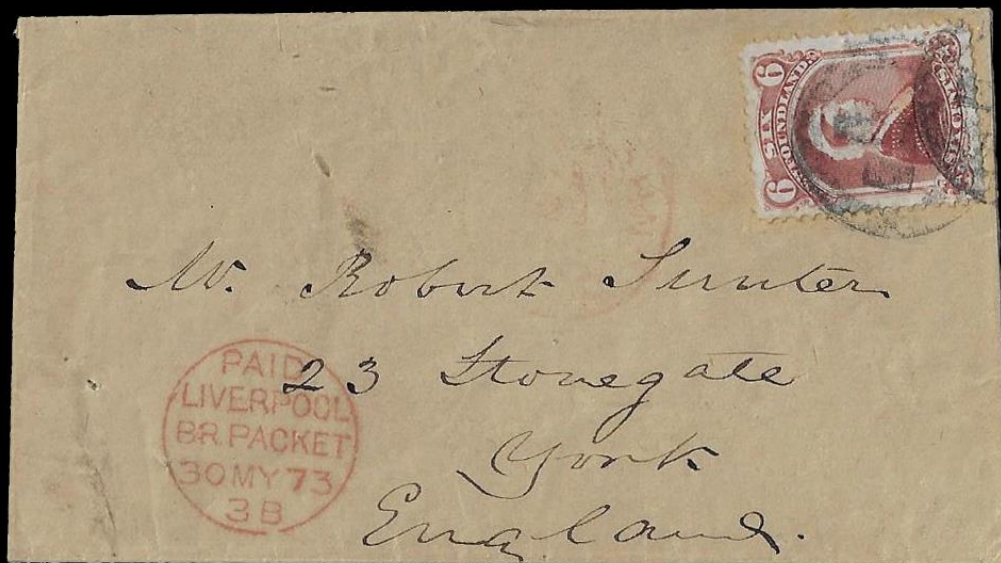 6 6
SIX
NEWFOUNDLAND
Mr. Robert Sunter
23 Stonegate
York
England.
PAID
LIVERPOOL
BR. PACKET
30 MY 73
3 B